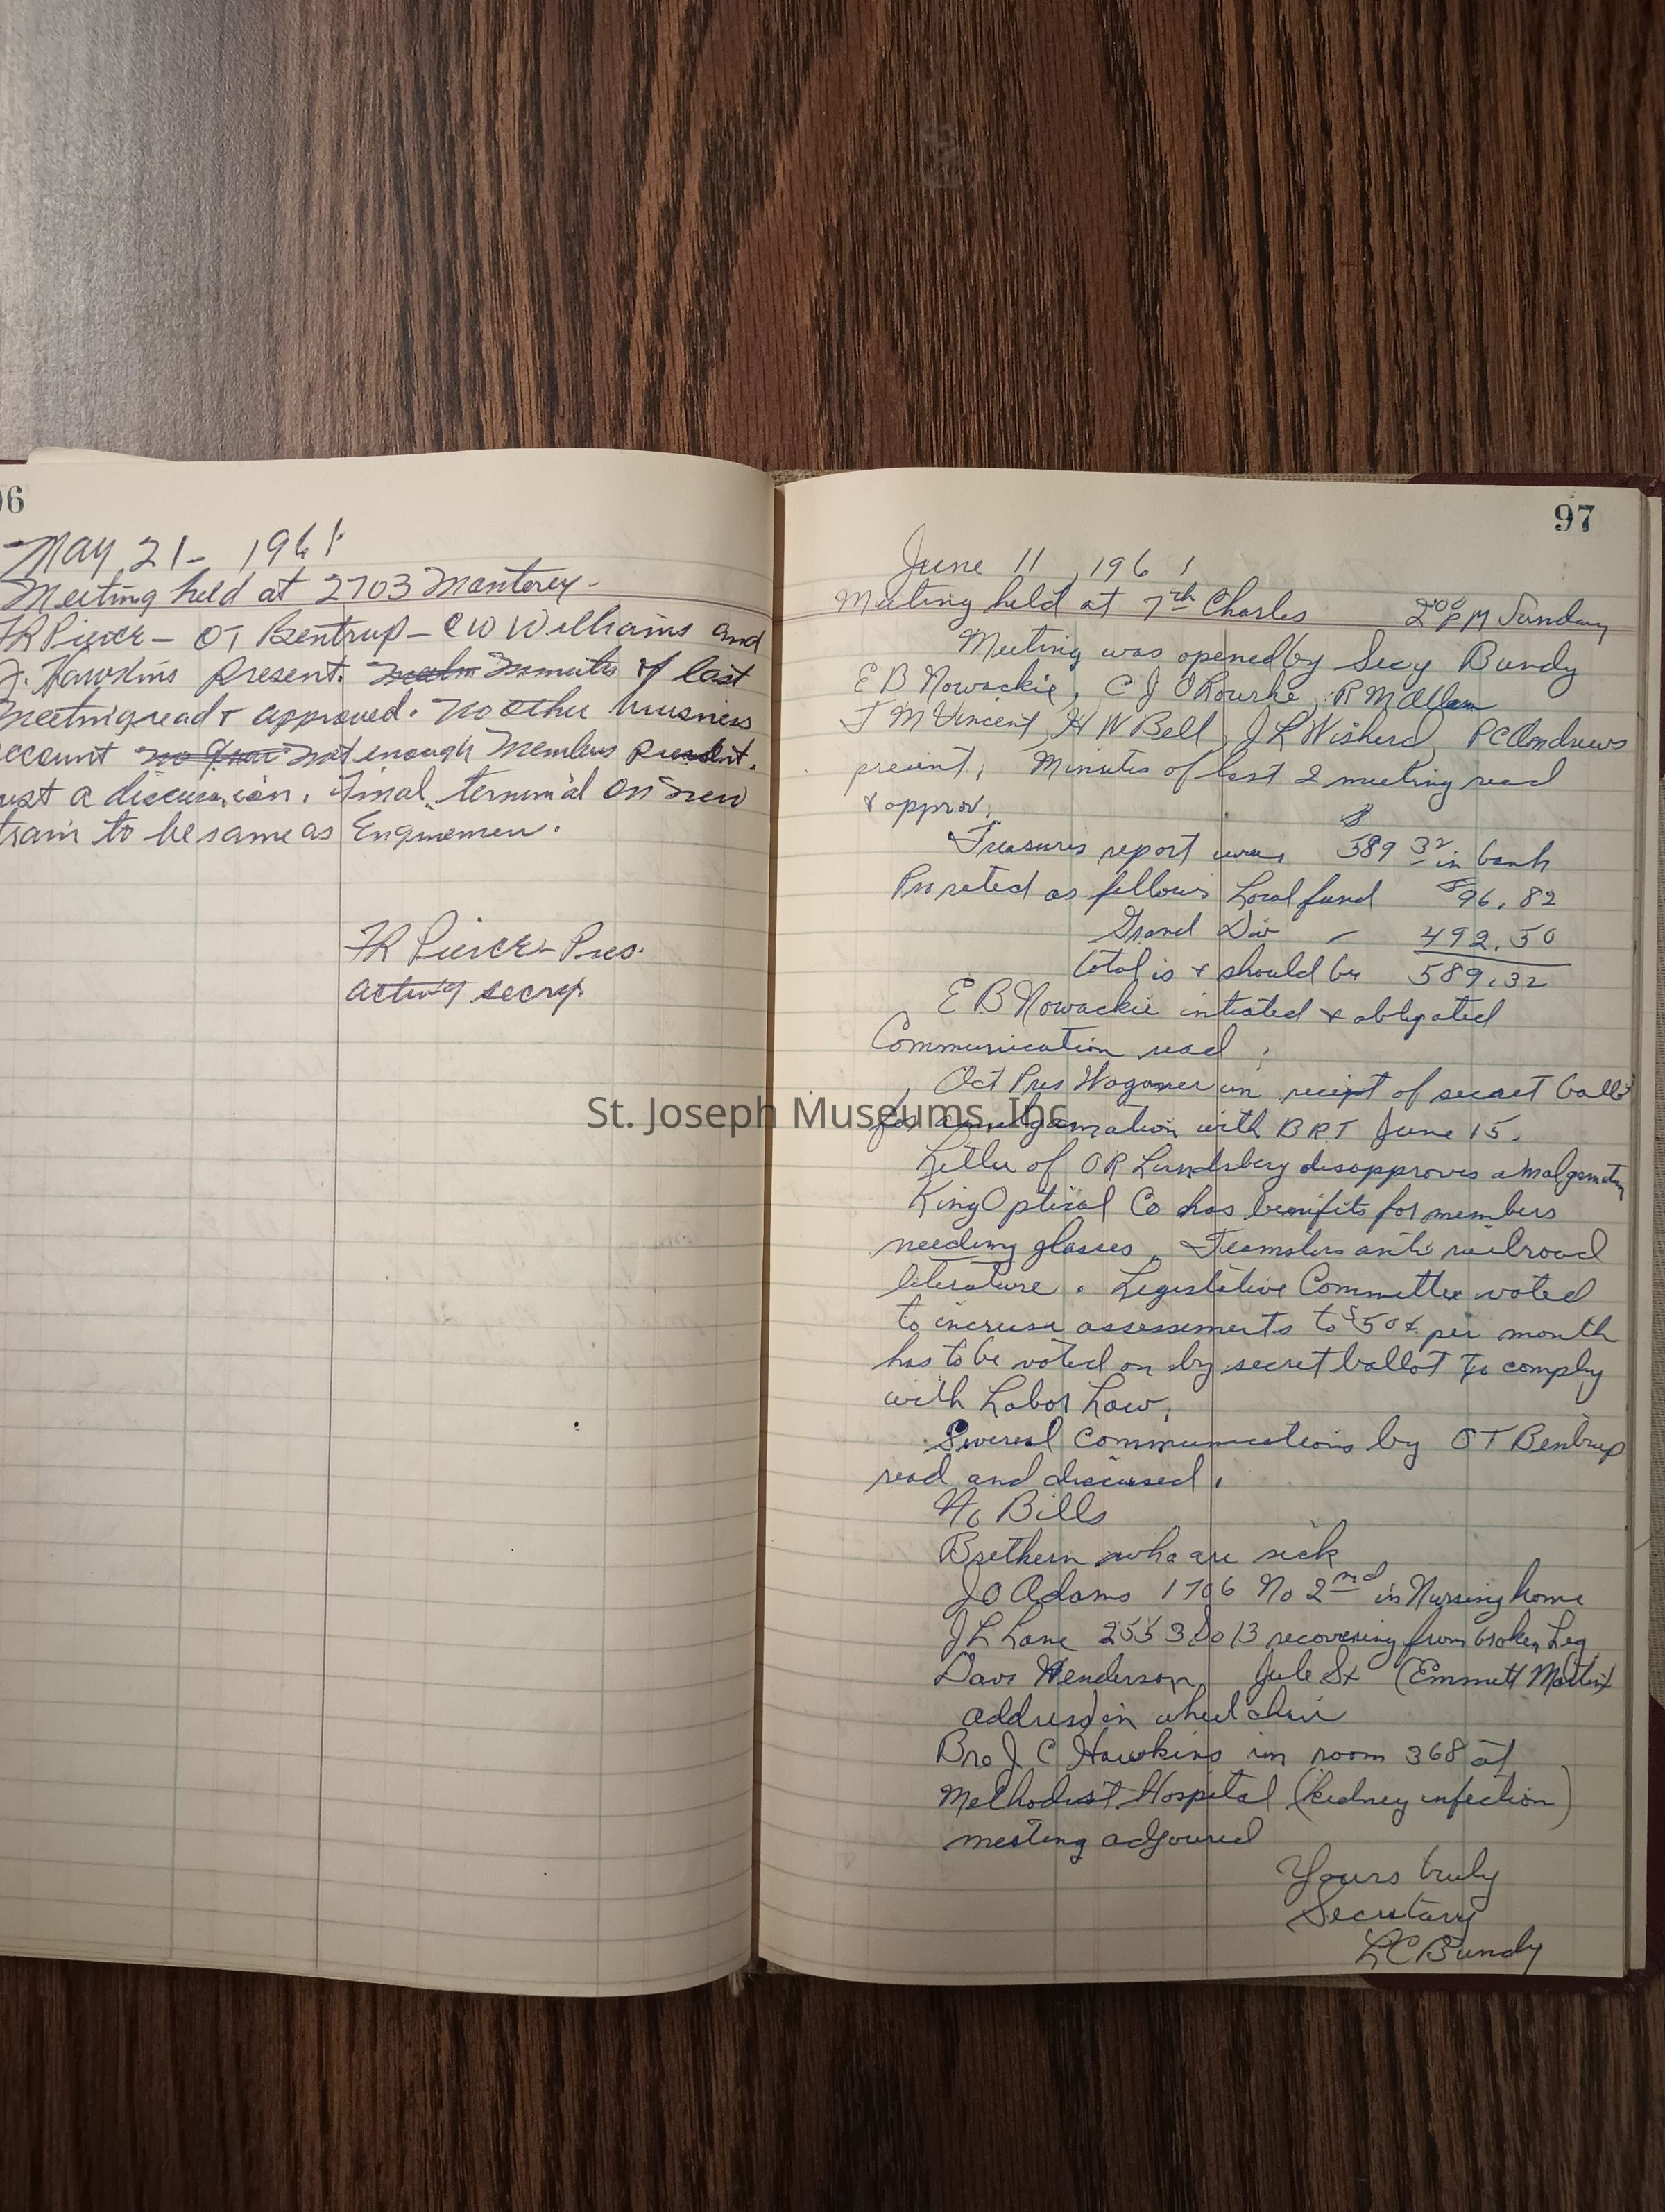 96
May 21 - 1961
Meeting held at 2703 Monterey -
FR Pierce - OT Bentrup - CW Williams and
J. Hawkins Present. Minutes of last
meeting read & approved. No other business
account not enough members present.
Just a discussion. Final terminal on new
train to be same as Enginemen.
FR Pierce - Pres.
acting secry.
97
June 11, 1961
Meeting held at 7th Charles 2:00 PM Sunday
Meeting was opened by Secy Bundy
E B Nowackie, C J O'Rourke, R M Allam
J M Vincent, H W Bell, J L Wisherd, P C Andrews
present, Minutes of last 2 meeting read
& approv.
Treasures report was $589 32 in bank
Prorated as follows Local fund $96.82
Grand Div - 492.50
total is & should be 589.32
E B Nowackie intiated & obligated
Communication read;
Oct Pres Wagoner in recipt of secret ballot
for amalgamation with BRT June 15.
Letter of O R Lundsberg disapproves amalgamation
King Optical Co has benifits for members
needing glasses. Teamsters anti railroad
literature. Legistative Committee voted
to increase assessements to 50¢ per month
has to be voted on by secret ballot to comply
with Labor Law.
Several communications by OT Bentrup
read and discussed.
No Bills
Brethern who are sick
J O Adams 1706 No 2nd in Nursing home
J L Lane 2553 So 13 recovering from broken Leg
Dave Henderson Jule St (Emmett Martin)
address) in wheel chair
Bro J C Hawkins in room 368 at
Methodist Hospital (kidney infection)
meeting adjoured
Yours truly
Secretary
L C Bundy
St. Joseph Museums, Inc.